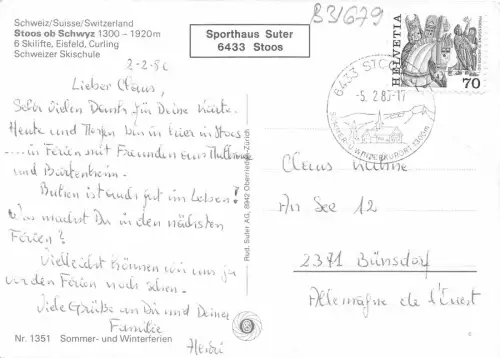 Schweiz/Suisse/Switzerland
Stoos ob Schwyz 1300 – 1920m
6 Skilifte, Eisfeld, Curling
Schweizer Skischule
Sporthaus Suter
6433 Stoos
B31679
HELVETIA
70
6433 STOOS
-5.2.80-17
SOMMER- U WINTERKURORT 1300m
2-2-80
Lieber Claus,
Sehr vielen Dank für Deine Karte.
Heute und Morgen bin in hier in Stoos
.... in Ferien mit Freunden aus
und
gut im Leben!
Was machst Du in den nächsten
Ferien?
Vielleicht können wir uns ja
vor den Ferien noch sehen.
Viele Grüße an Dich und Deiner
Familie
Henri
Rud. Suter AG, 8942 Oberrieden-Zürich
Claus
Am See 12
2371 Bünsdorf
Allemagne de l'Ouest
Nr. 1351 Sommer- und Winterferien